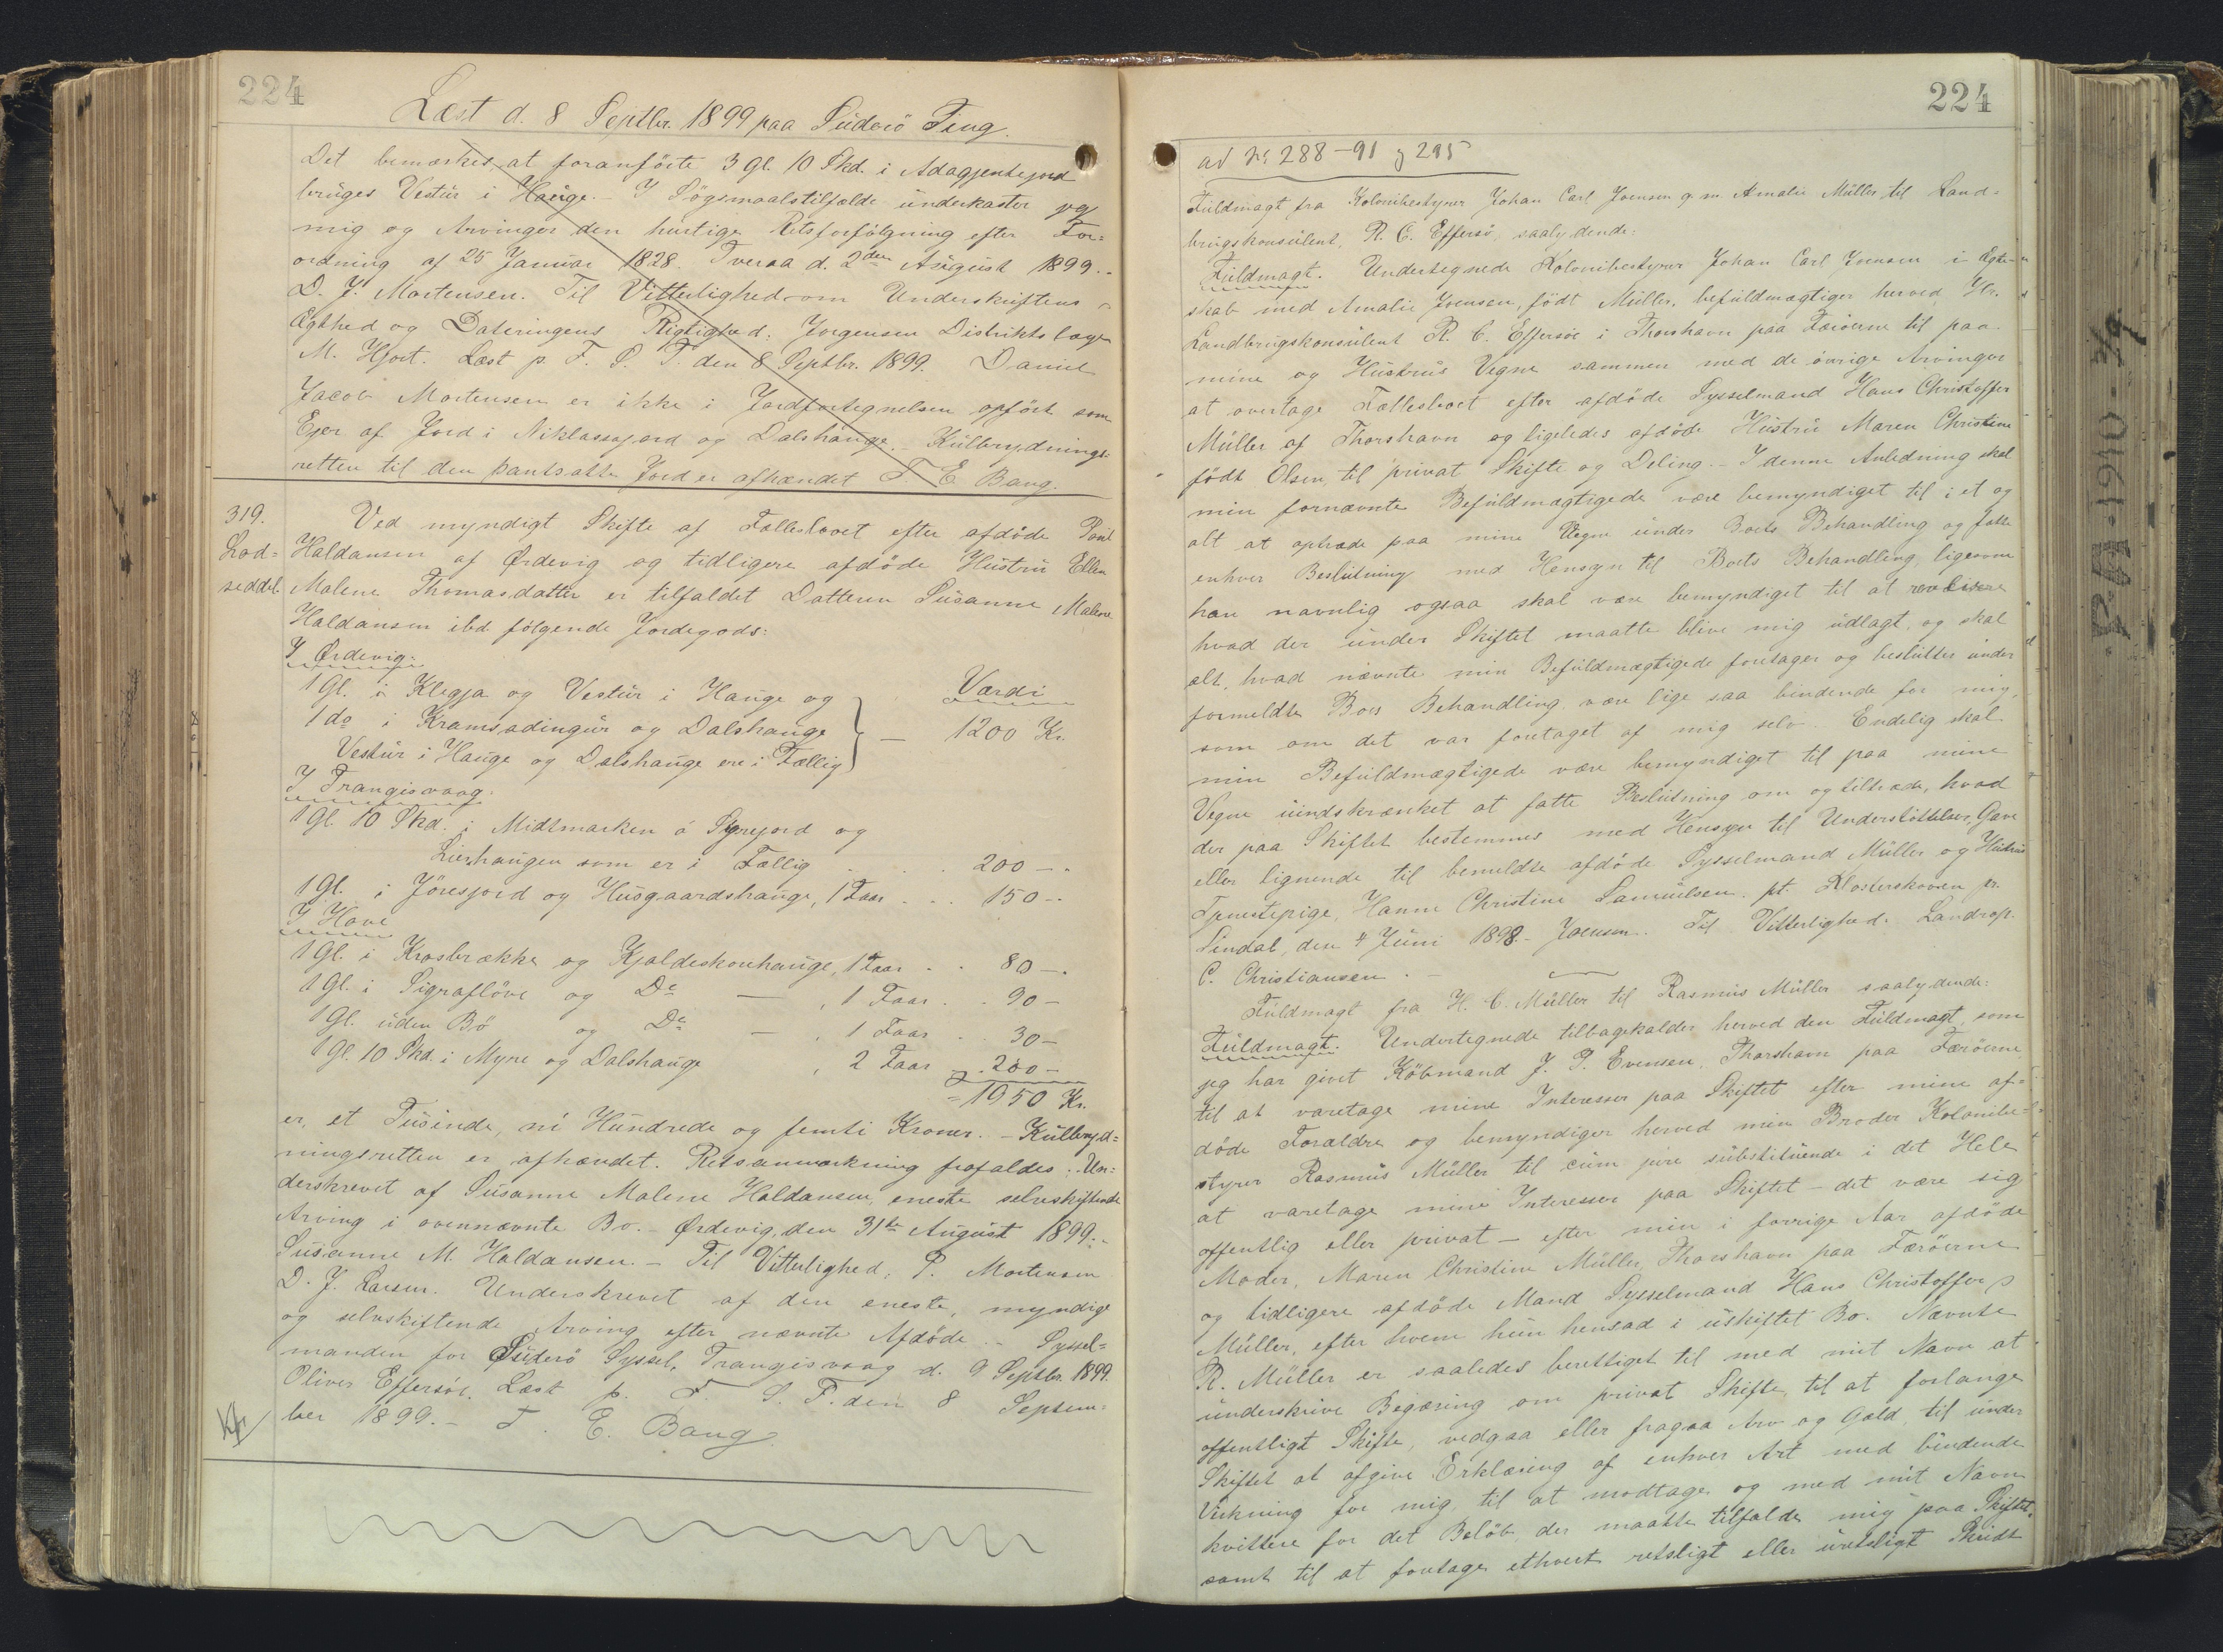 224
Læst d. 8 Septbr. 1899 paa Süderö Ting.
Det bemærkes, at foranförte 3 Gl. 10 Skd. i Adagjentejord
brüges Vestür i Haüge. – I Sögsmaalstilfælde ünderkaster jeg
mig og Arvinger den hurtige Retsforfölgning efter For=
ordning af 25 Januar 1828. Tveraa d. 2den August 1899. –
D. J. Mortensen. Til Vitterlighed om Underskriftens
Ægthed og Dateringens Rigtighed: Jorgensen Distriktslæge
M. Hjort. Læst p. F. S. T. den 8 Septbr. 1899. Daniel
Jacob Mortensen er ikke i Jordfortegnelsen opfört som
Ejer af Jord i Niklassajord og Dalshauge. – Külbrydnings-
retten til den pantsatte Jord er afhændet T. E. Bang.
319.
Lod=
seddel.
Ved myndigt Skifte af Fællesboet efter afdöde Poul
Haldansen af Ørdevig og tidligere afdöde Hüstrü Ellen
Malene Thomasdatter er tilfaldet Datteren Süsanne Malene
Haldansen ibd. fölgende Jordegods:
I Ørdevig:
Værdi
1 Gl. i Klegja og Vestür i Haüge og
1 do i Kramsadingür og Dalshaüge — 1200 Kr.
Vestür i Haüge og Dalshaüge ere i Fællig
I Trangisvaag:
1 Gl. 10 Skd. i Midtmarken á Sÿrejord og
Lierhaügen som er i Fællig . . . . 200 – .
1 Gl. i Jöresjord og Hüsgaardshaüge, 1 Faar . . . 150 – .
I Hove
1 Gl. i Krosbrække og Kjaldeskorhaüge, 1 Faar . . 80 – .
1 Gl. i Sigraflöve og Do — , 1 Faar . . 90 –
1 Gl. üden Bö og Do — , 1 Faar . . 30 –
1 Gl. 10 Skd. i Myre og Dalshaüge , 2 Faar . 200 –
= 1950 Kr.
er, et Tüsinde, ni Hündrede og femti Kroner. – Külbryd=
ningsretten er afhændet. Retsanmærkning frafaldes. – Un=
derskrevet af Süsanne Malene Haldansen, eneste selvskiftende
Arving i ovennævnte Bo. – Ørdevig, den 31te Aügüst 1899. –
Süsanne M. Haldansen. – Til Vitterlighed: P. Mortensen
D. J. Larsen. Underskrevet af den eneste, myndige
og selvskiftende Arving efter nævnte Afdöde. – Syssel=
manden for Süderö Syssel, Trangisvaag d. 9 Septbr. 1899.
Oliver Effersöe. Læst p. F. S. T. den 8 Septem=
ber 1899. – T. E. Bang
224
ad No 288–91 og 295
Füldmagt fra Kolonibestyrer Johan Carl Joensen g. m. Amalie Müller til Land=
brügskonsülent R. C. Effersö, saalydende:
Füldmagt. Undertegnede Kolonibestyrer Johan Carl Joensen i Ægte-
skab med Amalie Joensen, födt Müller, befüldmægtiger herved Hr.
Landbrügskonsülent R. C. Effersöe i Thorshavn paa Færöerne til paa
mine og Hüstrüs Vegne sammen med de övrige Arvinger
at overtage Fællesboet efter afdöde Sysselmand Hans Christoffer
Müller af Thorshavn og ligeledes afdöde Hüstrü Maren Christine
födt Olsen, til privat Skifte og Deling. – I denne Anledning skal
min fornævnte Befüldmægtigede være bemyndiget til i et og
alt at optræde paa mine Vegne ünder Boets Behandling og fatte
enhver Beslütning med Hensyn til Boets Behandling, ligesom
han navnlig ogsaa skal være bemyndiget til at realisere
hvad der ünder Skiftet maatte blive mig üdlagt, og skal
alt, hvad nævnte min Befüldmægtigede foretager og beslütter ünder
formeldte Boes Behandling, være lige saa bindende for mig,
som om det var foretaget af mig selv. Endelig skal
min Befüldmægtigede være bemyndiget til paa mine
Vegne üindskrænket at fatte Beslütning om og tiltræde, hvad
der paa Skiftet bestemmes med Hensyn til Understöttelser, Gave
eller lignende til bemeldte afdöde Sysselmand Müller og Hüstrüs
Tjenestepige, Hanne Christine Samüelsen. pt. Klosterskoven pr.
Lindal, den 4 Jüni 1898. – Joensen. Til Vitterlighed: Landrop.
C. Christiansen. –
Füldmagt fra H. C. Müller til Rasmüs Müller saalydende:
Füldmagt. Undertegnede tilbagekalder herved den Füldmagt, som
jeg har givet Köbmand J. P. Evensen, Thorshavn paa Færöerne
til at varetage mine Interesser paa Skiftet efter mine af=
döde Forældre og bemyndiger herved min Broder Kolonibe=
styrer Rasmüs Müller til cüm jure sübstitüende i det Hele
at varetage mine Interesser paa Skiftet – det være sig
offentlig eller privat – efter min i forrige Aar afdöde
Moder, Maren Christine Müller, Thorshavn paa Færöerne
og tidligere afdöde Mand Sysselmand Hans Christoffer
Müller, efter hvem hün hensad i üskiftet Bo. Nævnte
R. Müller er saaledes berettiget til med mit Navn at
ünderskrive Begæring om privat Skifte, til at forlange
offentligt Skifte, vedgaa eller fragaa Arv og Gæld, til ünder
Skiftet at afgive Erklæring af enhver Art med bindende
Virkning for mig, til at modtage og med mit Navn
kvittere for det Belöb, der maatte tilfalde mig paa Skiftet,
samt til at foretage ethvert retsligt eller üretsligt Skridt